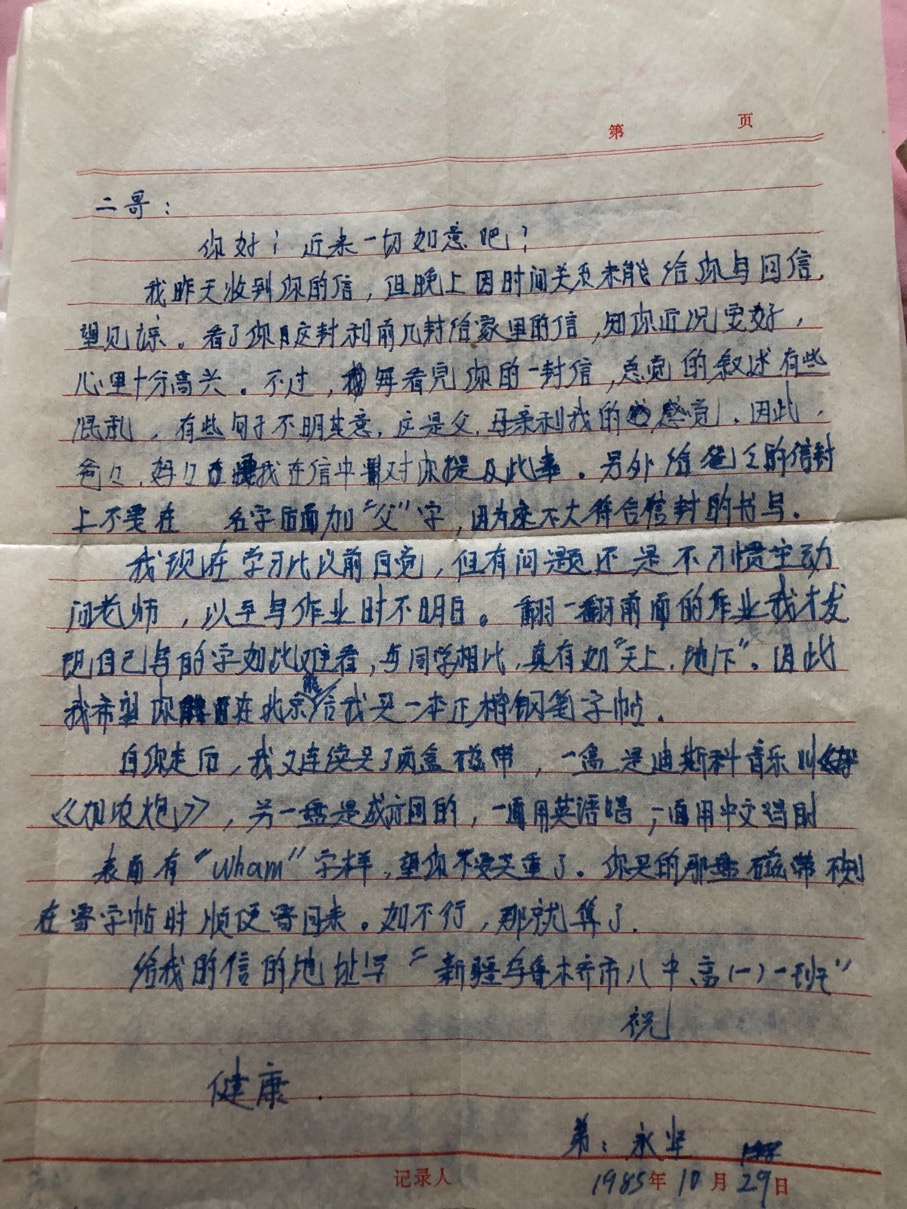 第 页
二哥：
你好！近来一切如意吧？
我昨天收到你的信，但晚上因时间关系未能给你写回信，
望见谅。看了你这封和前几封给家里的信，知你近况安好，
心里十分高兴。不过，每看完你的一封信，总觉的叙述有些
混乱，有些句子不明其意，这是父、母亲和我的感觉，因此，
爸々、妈々在信中对你提及此事。另外给爸々的信封
上不要在 名字后面加“父”字，因为这不大符合信封的书写。
我现在学习比以前自觉，但有问题还是不习惯主动
问老师，以至写作业时不明白。翻一翻前面的作业我才发
现自己写的字如此难看，与同学相比，真有如“天上，地下”。因此
我希望你能在北京给我买一本正楷钢笔字帖。
自你走后，我又连续买了两盒磁带，一盒是迪斯科音乐叫
《加农炮》，另一盘是成方圆的，一面用英语唱，一面用中文唱时
表面有“Wham”字样，望你不要买重了。你买的那盘磁带
在寄字帖时顺便寄回来。如不行，那就算了.
给我的信的地址写“新疆乌鲁木齐市八中高(一)一班”
祝
健康.
弟：永坚
记录人 1985年10月29日